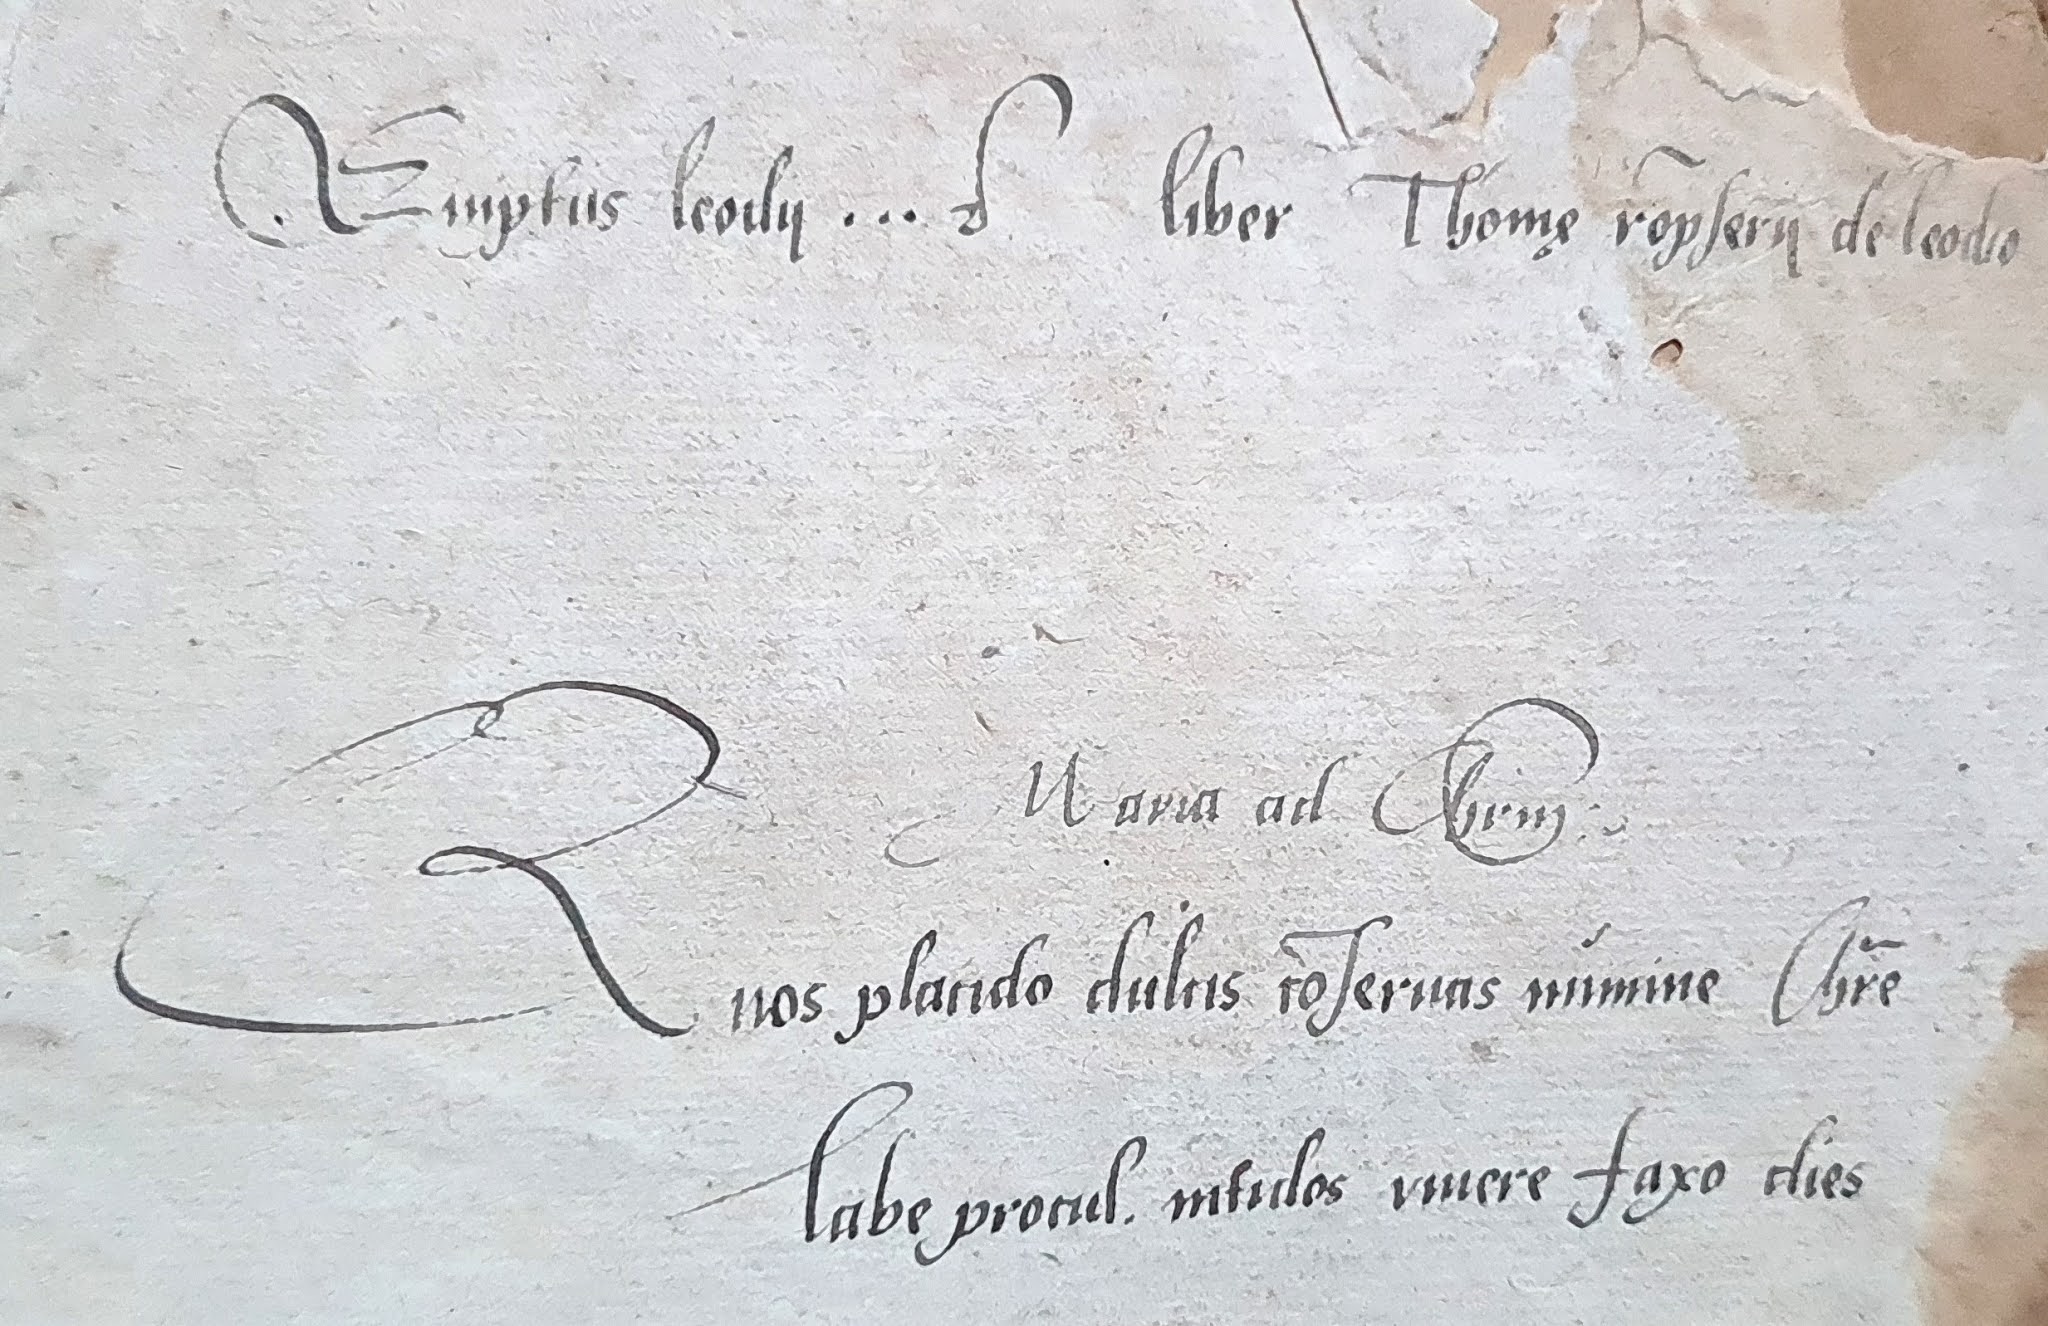 Emptus leodij ... liber Thomę rõpserij de leodio
Maria ad Chrm:
Quos placido dulcis cõseruas numine Chr̃e
labe procul. nitidos viuere faxo dies